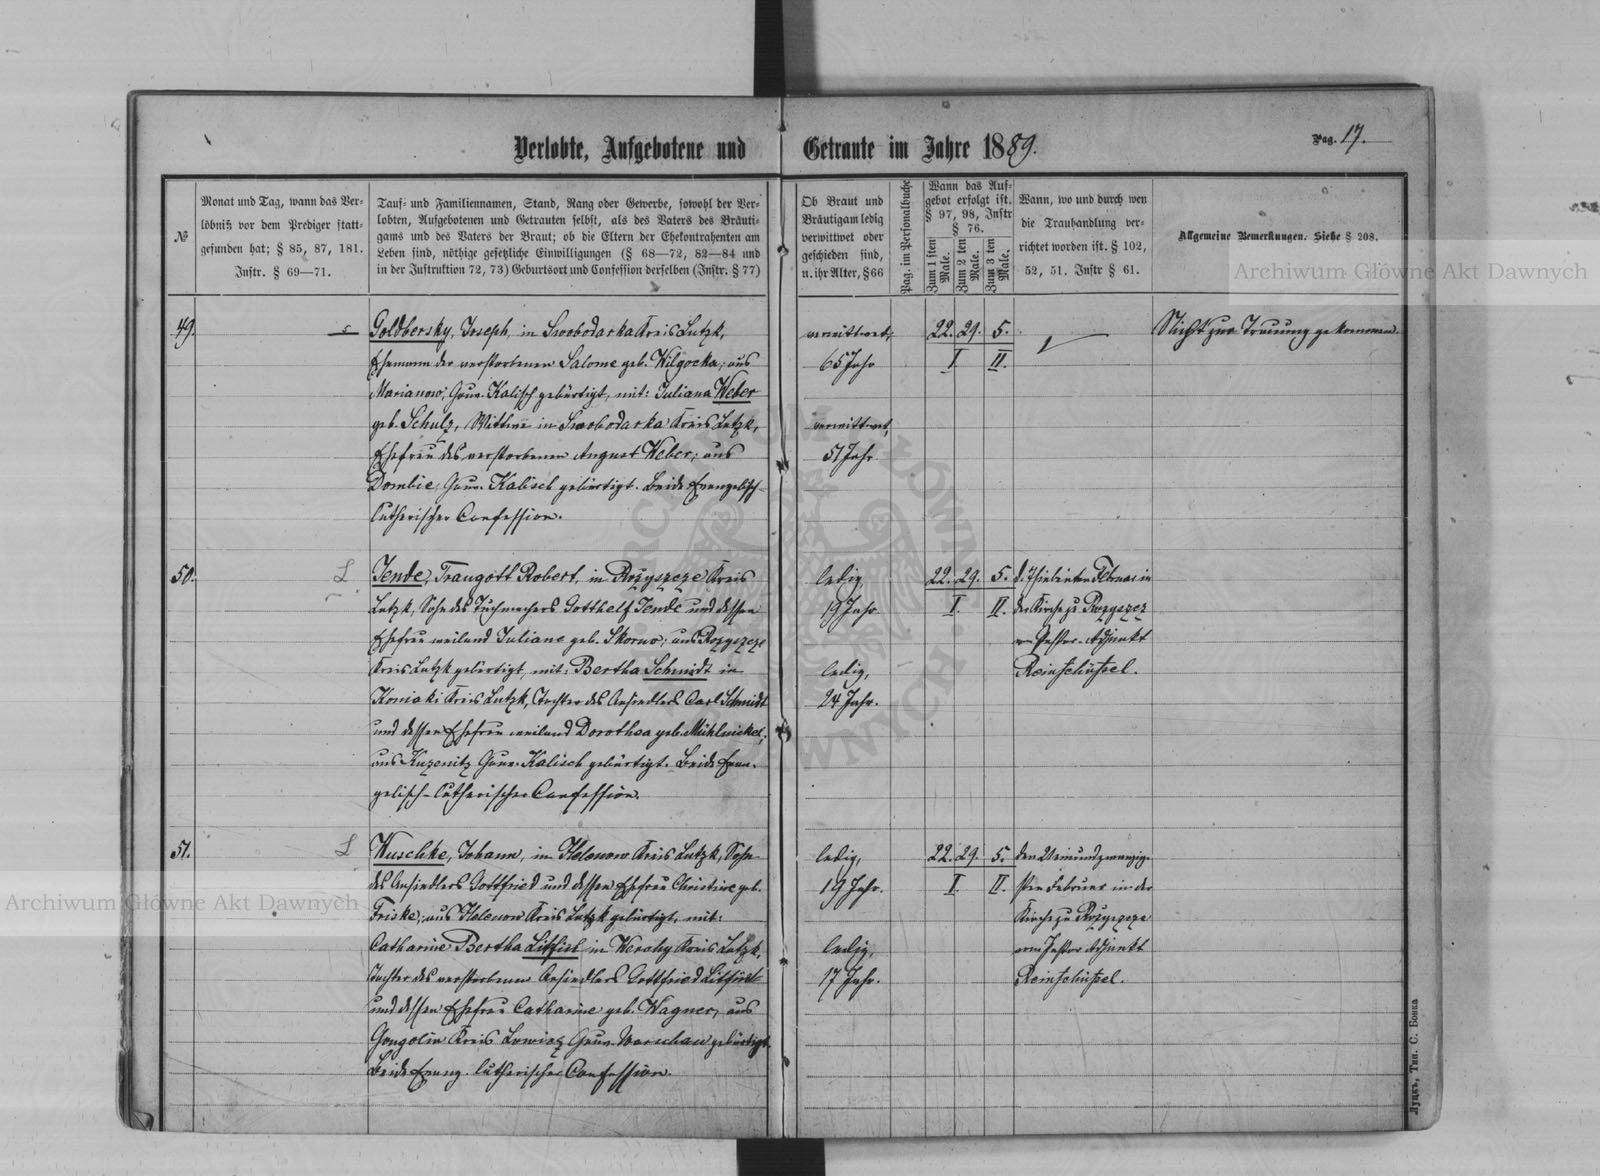 Verlobte, Aufgebotene und Getraute im Jahre 1889.
Pag. 17.
№
Monat und Tag, wann das Ver-
löbniß vor dem Prediger statt-
gefunden hat; § 85, 87, 181.
Instr. § 69—71.
Tauf- und Familiennamen, Stand, Rang oder Gewerbe, sowohl der Ver-
lobten, Aufgebotenen und Getrauten selbst, als des Vaters des Bräuti-
gams und des Vaters der Braut; ob die Eltern der Ehekontrahenten am
Leben sind, nöthige gesetzliche Einwilligungen (§ 68—72, 82—84 und
in der Instruktion 72, 73) Geburtsort und Confession derselben (Instr. § 77)
Ob Braut und
Bräutigam ledig
verwittwet oder
geschieden sind,
u. ihr Alter, § 66
Pag. im Personalbuche
Wann das Auf-
gebot erfolgt ist.
§ 97, 98, Instr
§ 76.
Zum 1 sten Male.
Zum 2 ten Male.
Zum 3 ten Male.
Wann, wo und durch wen
die Trauhandlung ver-
richtet worden ist. § 102,
52, 51. Instr § 61.
Allgemeine Bemerkungen. Siehe § 208.
Archiwum Główne Akt Dawnych
49.
Goldbersky, Joseph, in Swobodarka Kreis Lutzk,
Ehemann der verstorbenen Salome geb. Wilgocka, aus
Marianow, Gouv. Kalisch gebürtigt, mit: Juliana Weber
geb. Schulz, Wittwe in Swobodarka Kreis Lutzk,
Ehefrau des verstorbenen August Weber, aus
Dombie, Gouv. Kalisch gebürtigt. Beide Evangelisch-
Lutherischer Confession.
verwittwet,
65 Jahr
verwittwet,
51 Jahr.
22. 29. 5.
I. II.
Nicht zur Trauung gekommen.
50.
L
Jende, Traugott Robert, in Rożyszcze Kreis
Lutzk, Sohn des Tuchmachers Gotthelf Jende und dessen
Ehefrau weiland Juliane geb. Skorno, aus Rozyszcze
Kreis Lutzk gebürtigt, mit: Bertha Schmidt in
Koniaki Kreis Lutzk, Tochter des Ansiedlers Carl Schmidt
und dessen Ehefrau weiland Dorothea geb. Mühlnickel,
aus Kuzenitz Gouv. Kalisch gebürtigt. Beide Evan-
gelisch-Lutherischer Confession.
ledig,
19 Jahr.
ledig,
24 Jahr.
22. 29. 5.
I. II.
d. Siebenten Februar in
der Kirche zu Rozyszcz
vom Pastor-Adjunkt
Reinschüssel.
51.
L
Kuschke, Johann, in Helenow Kreis Lutzk, Sohn
des Ansiedlers Gottfried und dessen Ehefrau Christine geb.
Friske, aus Helenow Kreis Lutzk gebürtigt, mit:
Catharine Bertha Litfiet in Werchy Kreis Lutzk,
Tochter des verstorbenen Ansiedlers Gottfried Litfiet
und dessen Ehefrau Catharine geb. Wagner, aus
Gongolin Kreis Lowicz Gouv. Warschau gebürtigt.
Beide Evang. lutherischer Confession.
ledig,
19 Jahr.
ledig,
17 Jahr.
22. 29. 5.
I. II.
den Neinundzwanzig-
sten Februar in der
Kirche zu Rożyszcze
vom Pastor Adjunkt
Reinschüssel.
Archiwum Główne Akt Dawnych
Луцкъ, Тип. С. Бонка